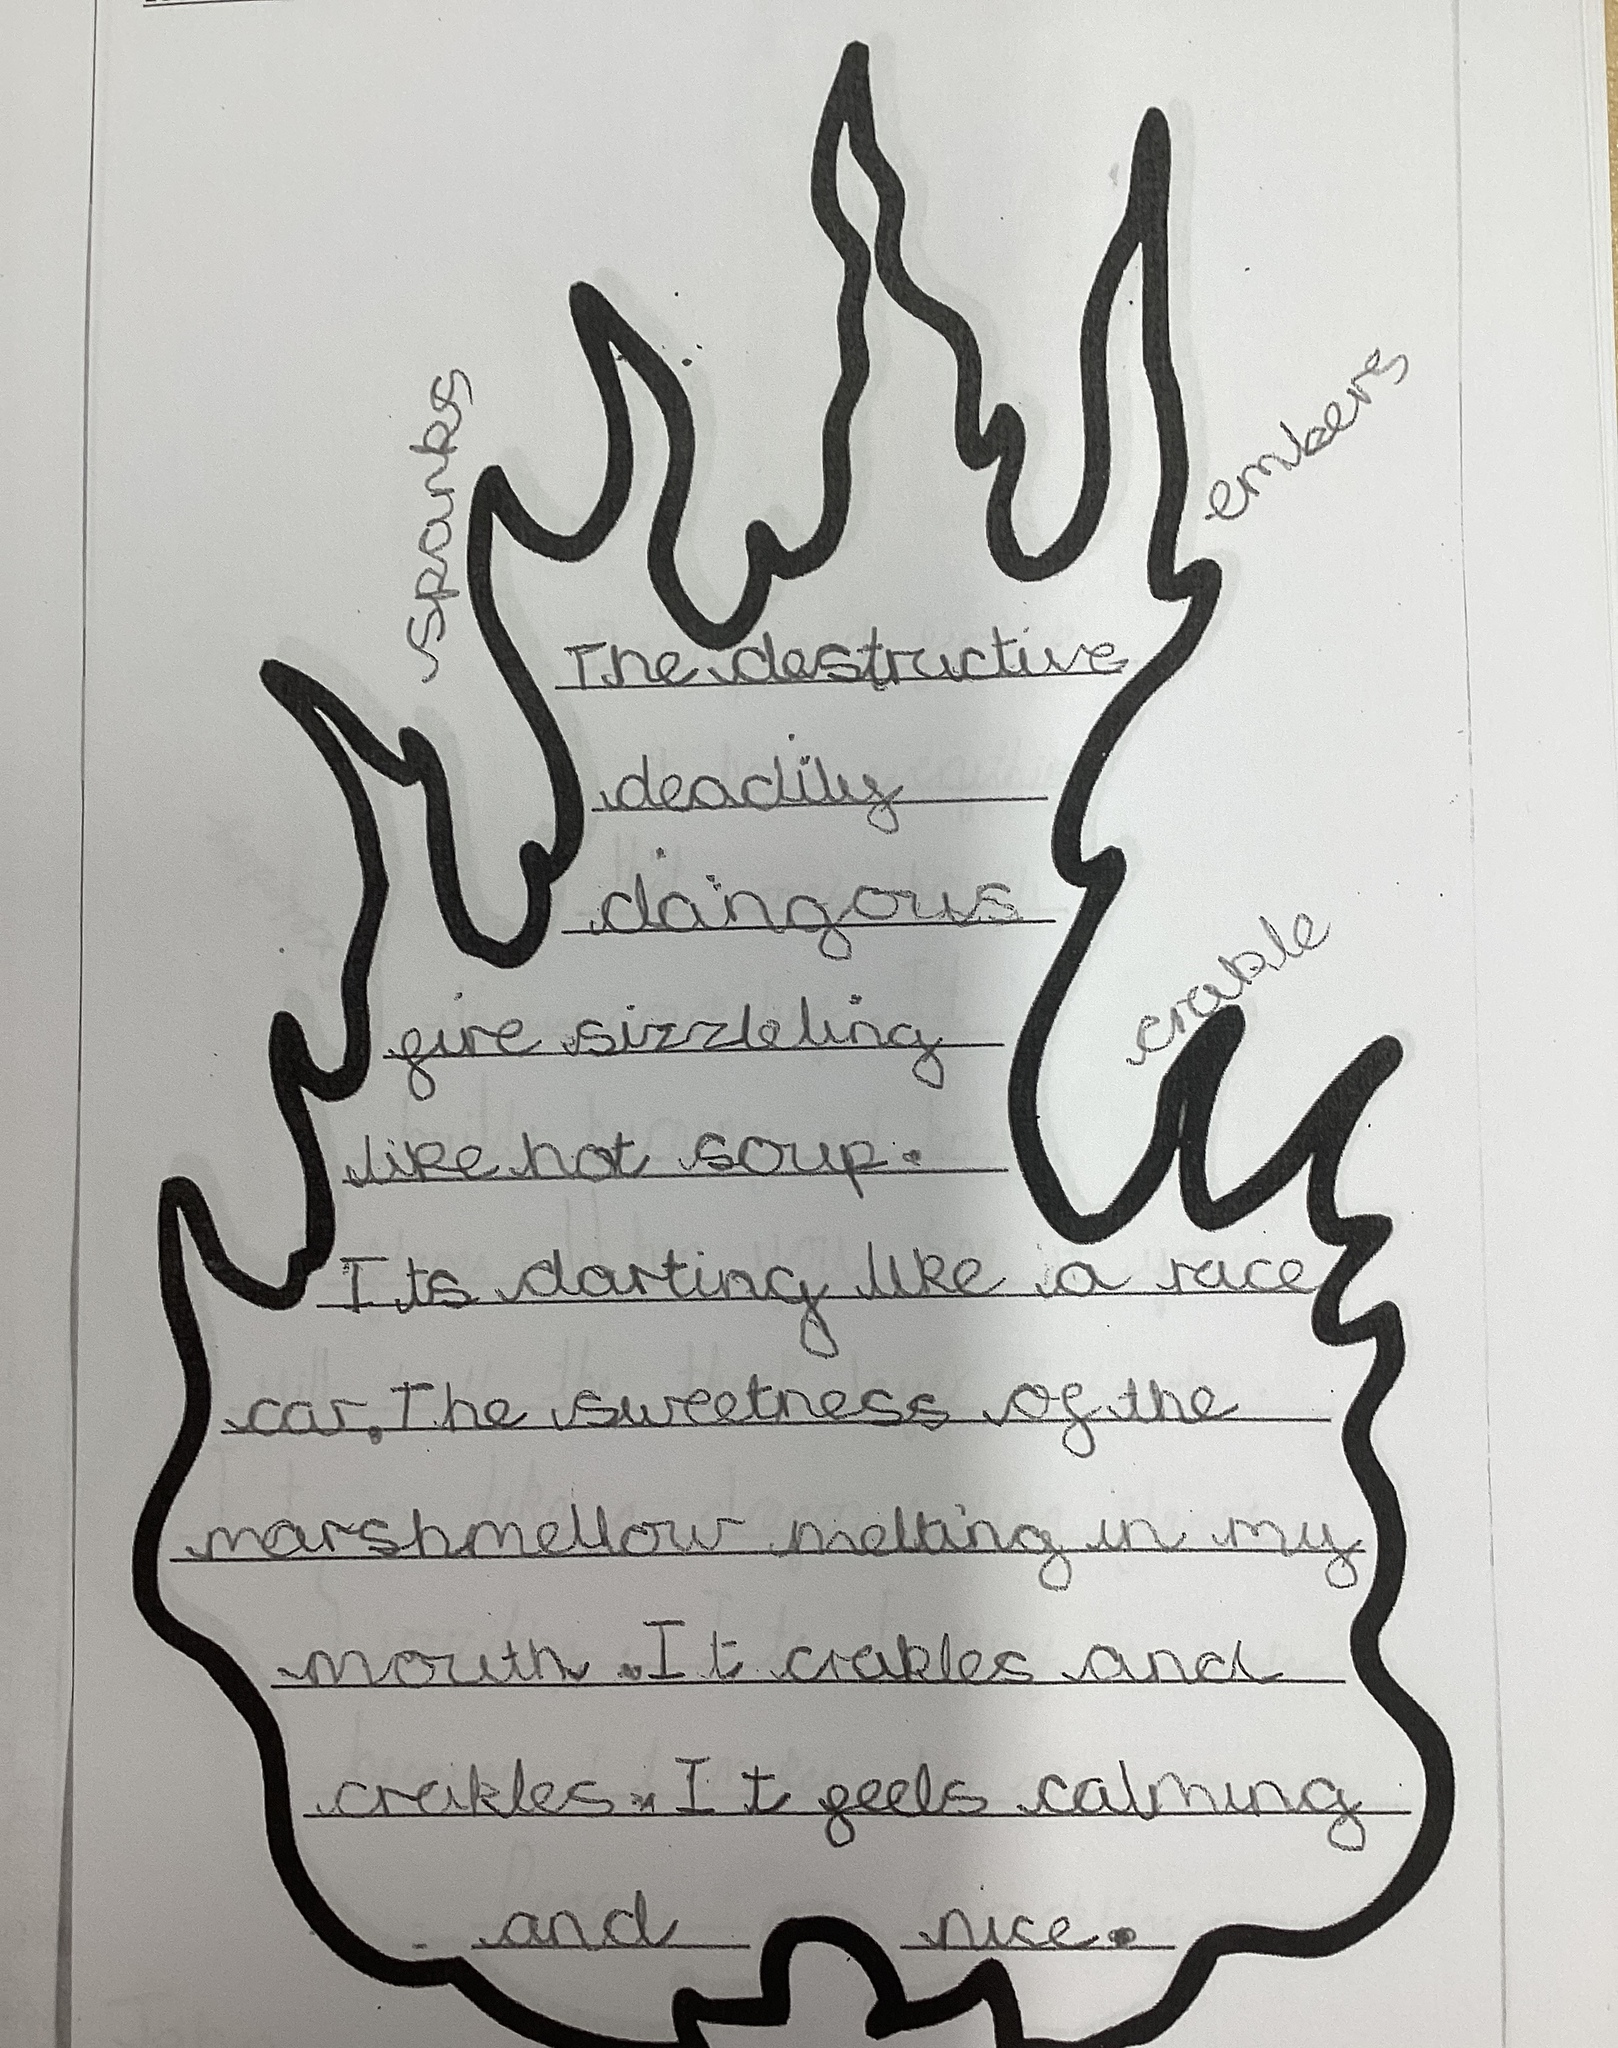 sparks
embers
The destructive
deadily
daingous
crakle
fire sizzleling
like hot soup.
Its darting like a race
car. The sweetness of the
marshmellow melting in my
mouth. It crakles and
crakles. It feels calming
and nice.